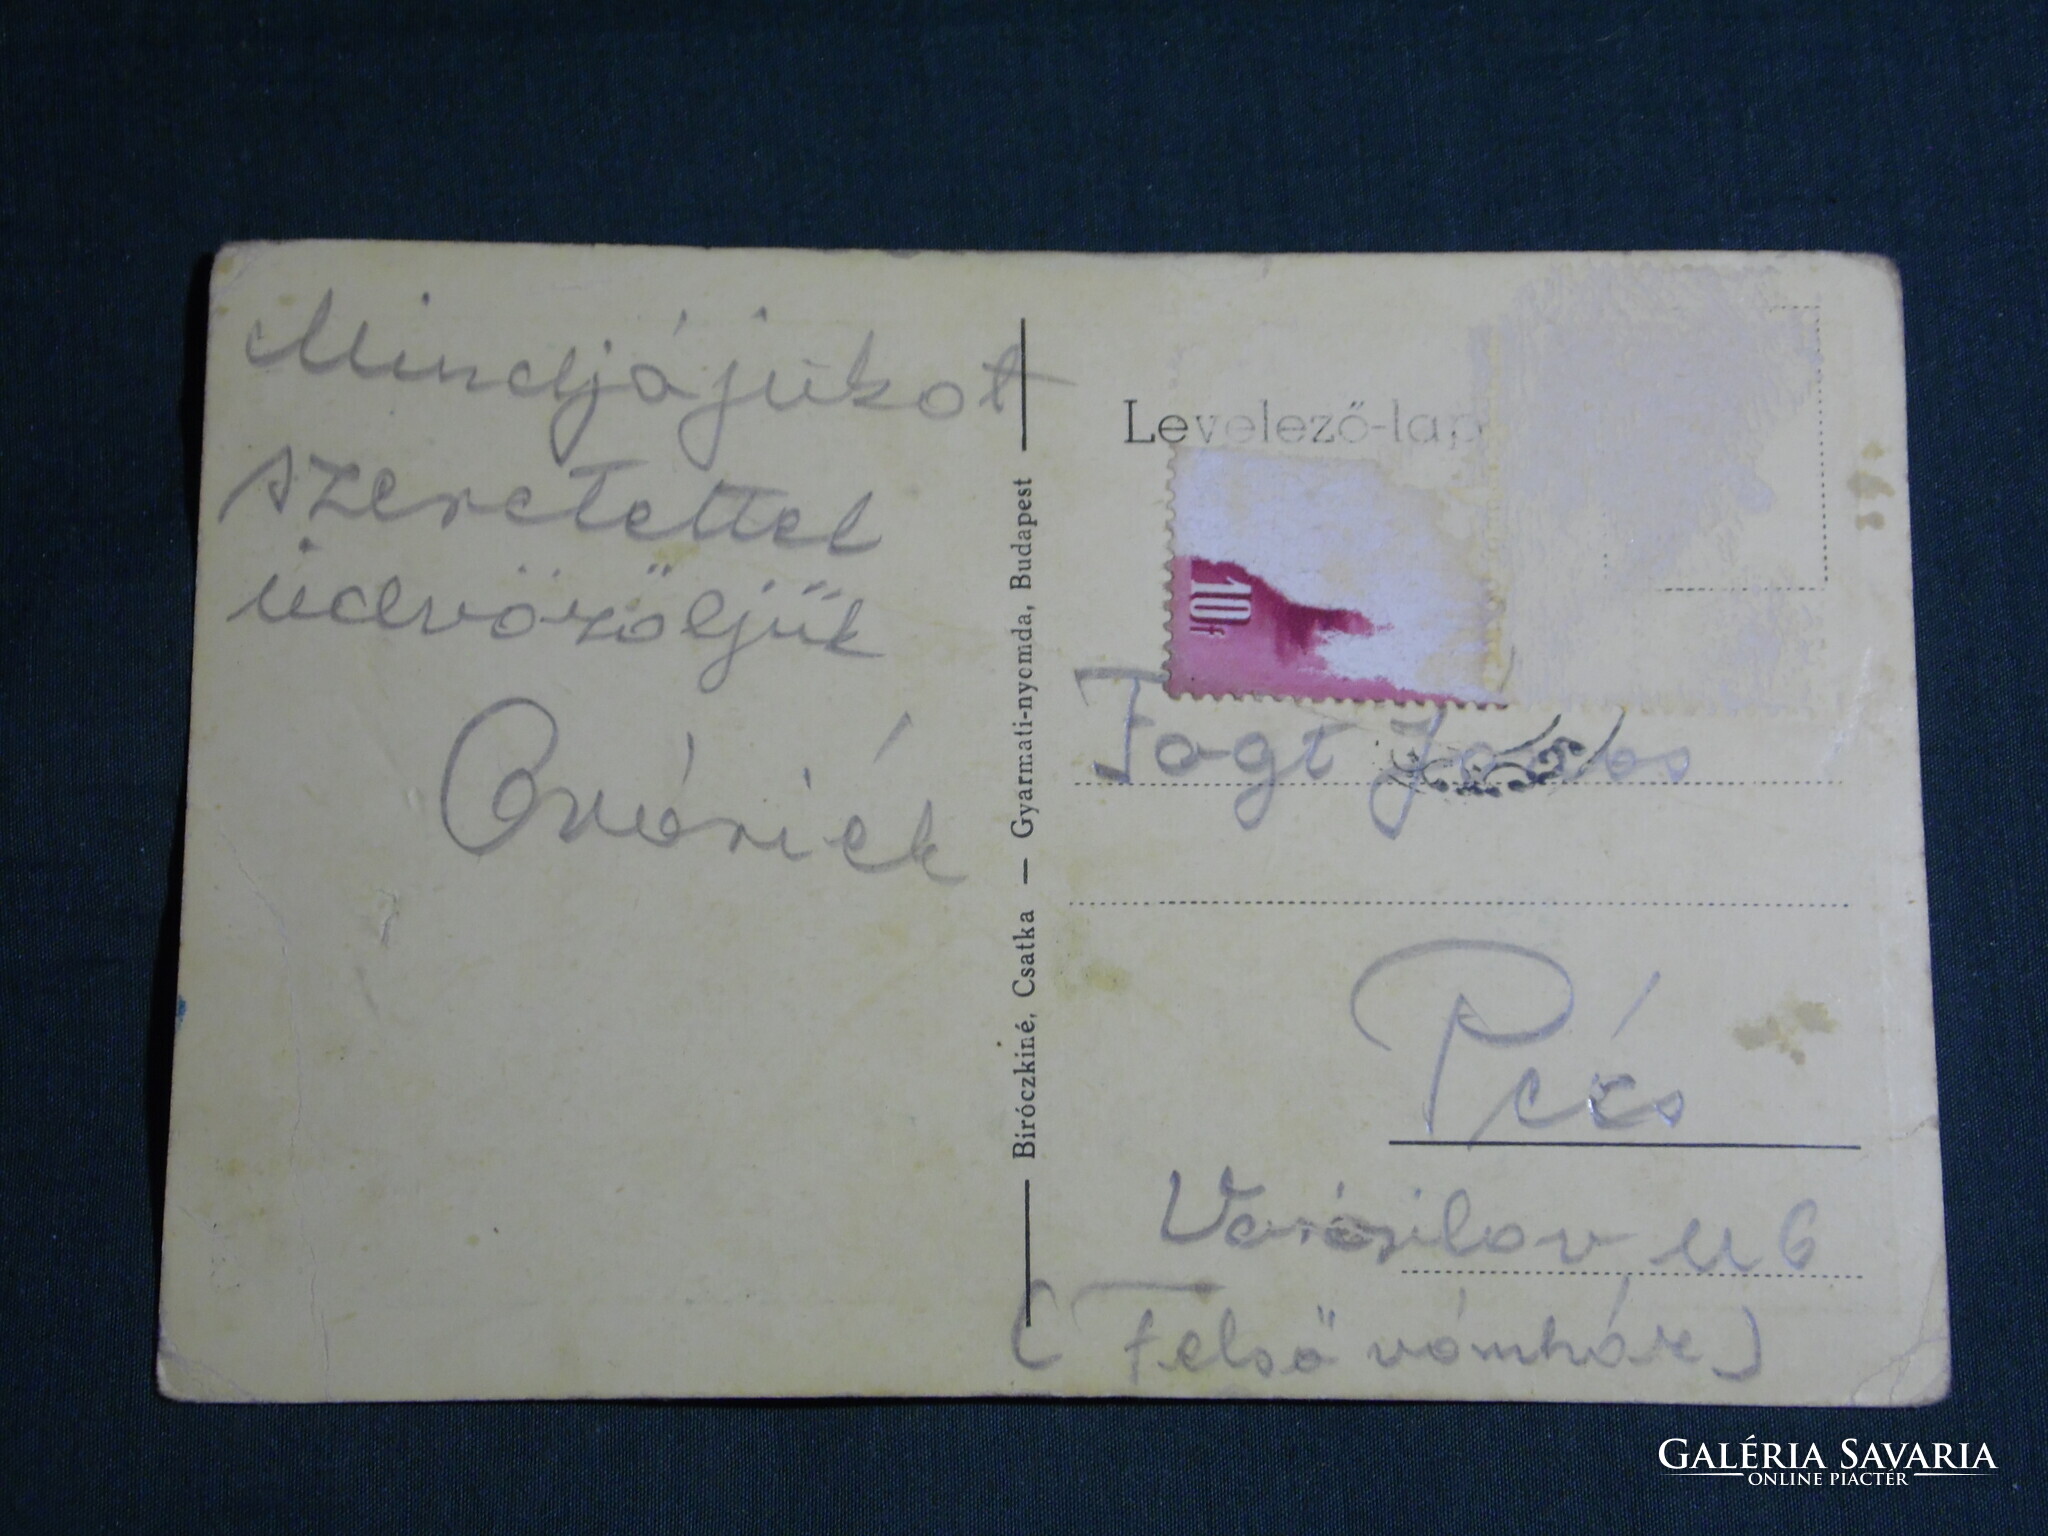 Mindjájukot
szeretettel
üdvözöljük
Óváriék
Biróczkiné, Csatka — Gyarmati-nyomda, Budapest
Levelező-lap
10f
Fogt János
Pécs
Vorosilov u 6
(Felső vámház)
GALÉRIA SAVARIA
ONLINE PIACTÉR